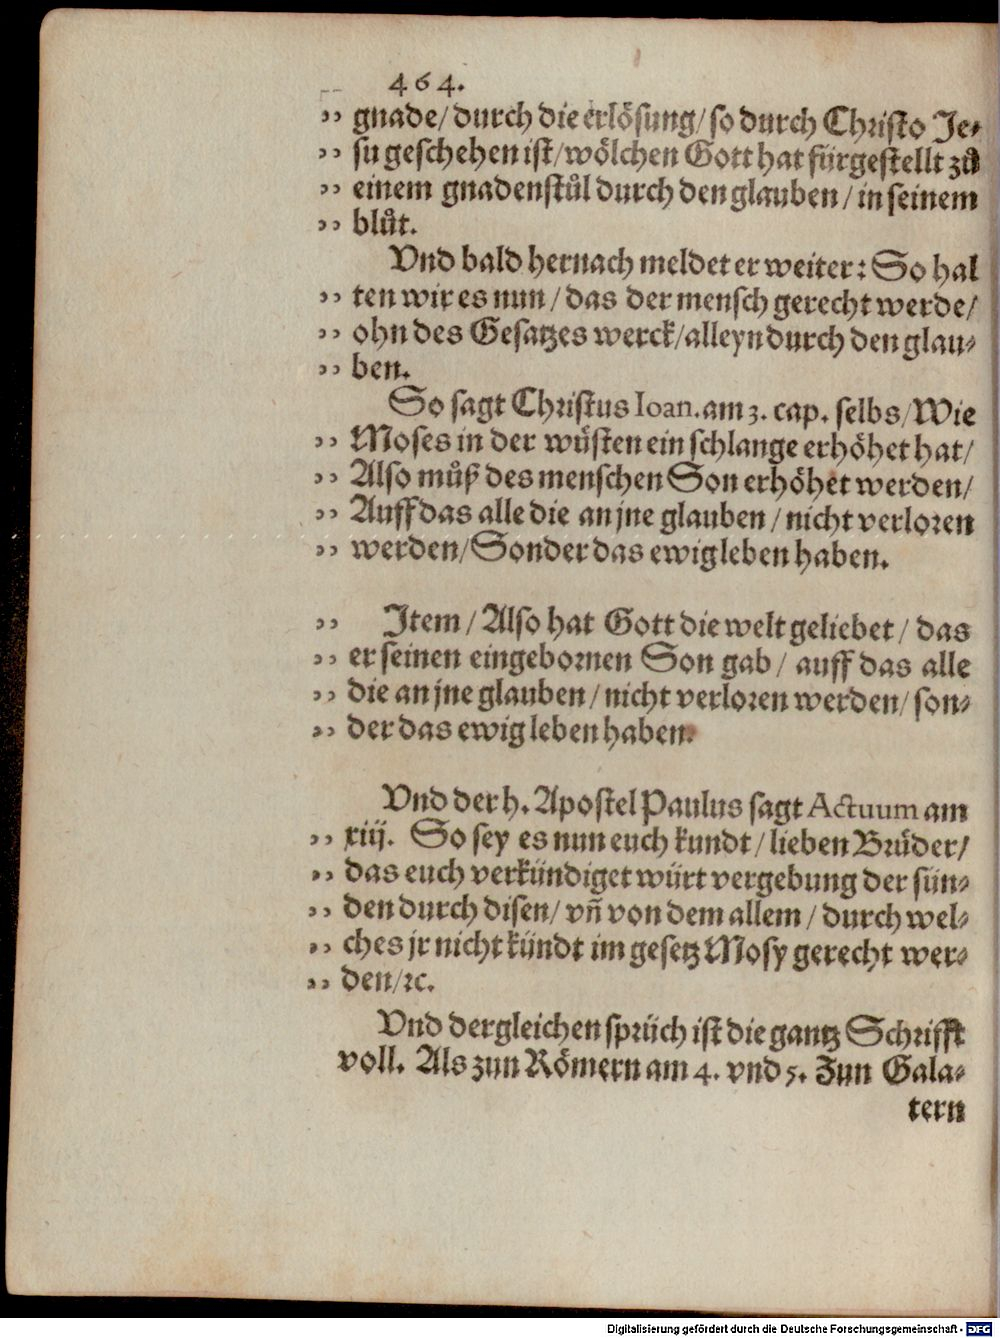 464.
„ gnade/ durch die erlösung/ so durch Christo Je⸗
„ su geschehen ist/ wölchen Gott hat fürgestellt zů
„ einem gnadenstůl durch den glauben / in seinem
„ blůt.
Vnd bald hernach meldet er weiter: So hal
„ ten wir es nun / das der mensch gerecht werde/
„ ohn des Gesatzes werck/ alleyn durch den glau⸗
„ ben.
So sagt Christus Ioan. am 3. cap. selbs/ Wie
„ Moses in der wüsten ein schlange erhöhet hat/
„ Also můß des menschen Son erhöhet werden/
„ Auff das alle die an jne glauben / nicht verloren
„ werden/ Sonder das ewig leben haben.
„ Item / Also hat Gott die welt geliebet / das
„ er seinen eingebornen Son gab / auff das alle
„ die an jne glauben / nicht verloren werden/ son⸗
„ der das ewig leben haben.
Vnd der h. Apostel Paulus sagt Actuum am
„ xiij. So sey es nun euch kundt / lieben Brüder/
„ das euch verkündiget würt vergebung der sün⸗
„ den durch disen/ vñ von dem allem / durch wel⸗
„ ches jr nicht kündt im gesetz Mosy gerecht wer⸗
„ den/ꝛc.
Vnd dergleichen sprüch ist die gantz Schrifft
voll. Als zun Römern am 4. vnd 5. Zun Gala⸗
tern
Digitalisierung gefördert durch die Deutsche Forschungsgemeinschaft - DFG